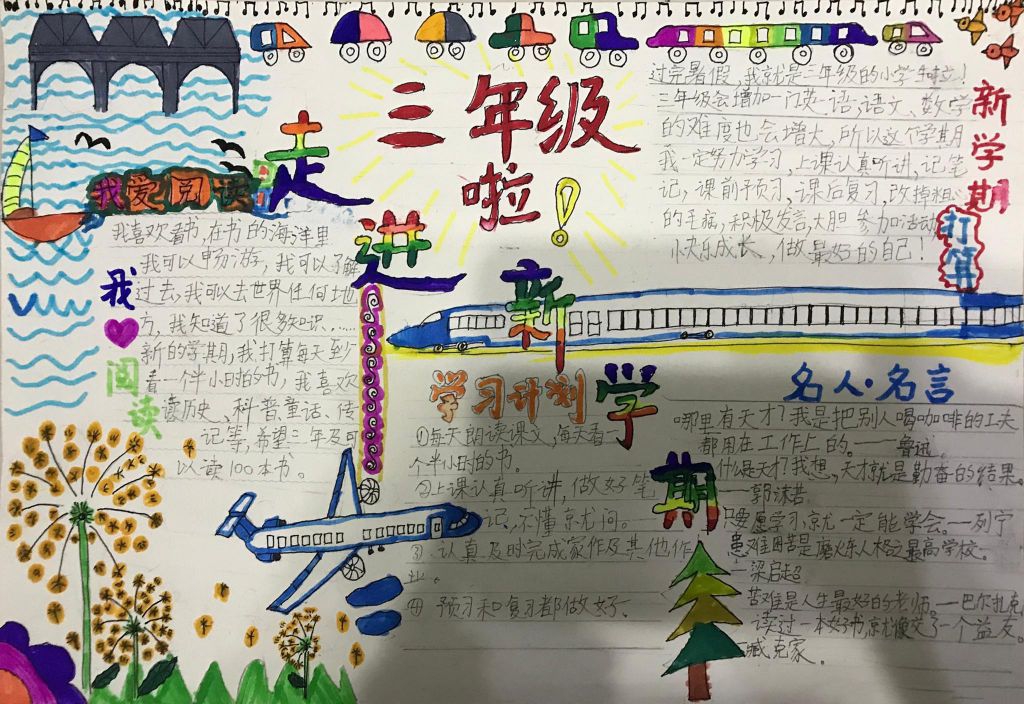 三年级
啦!
走进新学期
我爱阅读
我喜欢看书,在书的海洋里
我可以畅游,我可以了解
过去,我可以去世界任何地
方,我知道了很多知识……
新的学期,我打算每天至少
看一个半小时的书,我喜欢
读历史、科普童话、传
记等,希望三年及可
以读100本书。
我
阅
读
新学期
打算
过完暑假,我就是三年级的小学生啦!
三年级会增加一门英语,语文、数学
的难度也会增大,所以这个学期
我一定努力学习,上课认真听讲,记笔
记,课前预习,课后复习,改掉粗心
的毛病,积极发言,大胆参加活动
快乐成长,做最好的自己!
学习计划
①每天朗读课文,每天看一
个半小时的书。
②上课认真听讲,做好笔
记,不懂就问。
③认真及时完成家作及其他作
业。
④预习和复习都做好、
名人·名言
哪里有天才?我是把别人喝咖啡的工夫
都用在工作上的。——鲁迅
什么是天才?我想,天才就是勤奋的结果。
——郭沫若
只要愿学习,就一定能学会。——列宁
患难困苦是磨炼人格之最高学校。
——梁启超
苦难是人生最好的老师。——巴尔扎克
读过一本好书,就像交了一个益友。
臧克家。